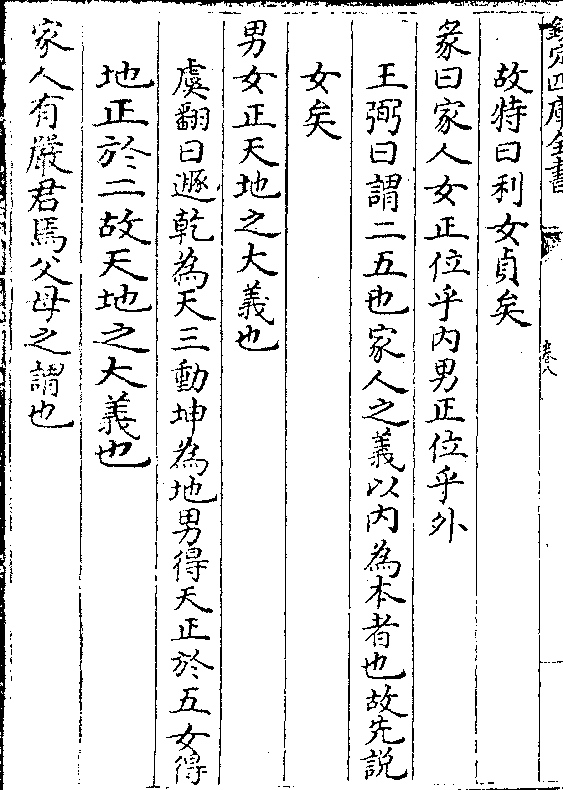 欽定四庫全書
卷八
故特曰利女貞矣
彖曰家人女正位乎内男正位乎外
王弼曰謂二五也家人之義以内為本者也故先説
女矣
男女正天地之大義也
虞翻曰遯乾為天三動坤為地男得天正於五女得
地正於二故天地之大義也
家人有嚴君焉父母之謂也